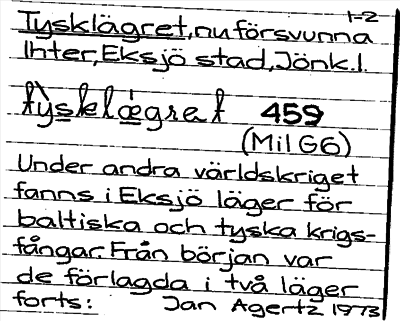 1-2
Tysklägret, nu försvunna
Ihter, Eksjö stad, Jönk. l.
tỳsklægret 459
(Mil G6)
Under andra världskriget
fanns i Eksjö läger för
baltiska och tyska krigs-
fångar. Från början var
de förlagda i två läger
forts: Jan Agertz 1973